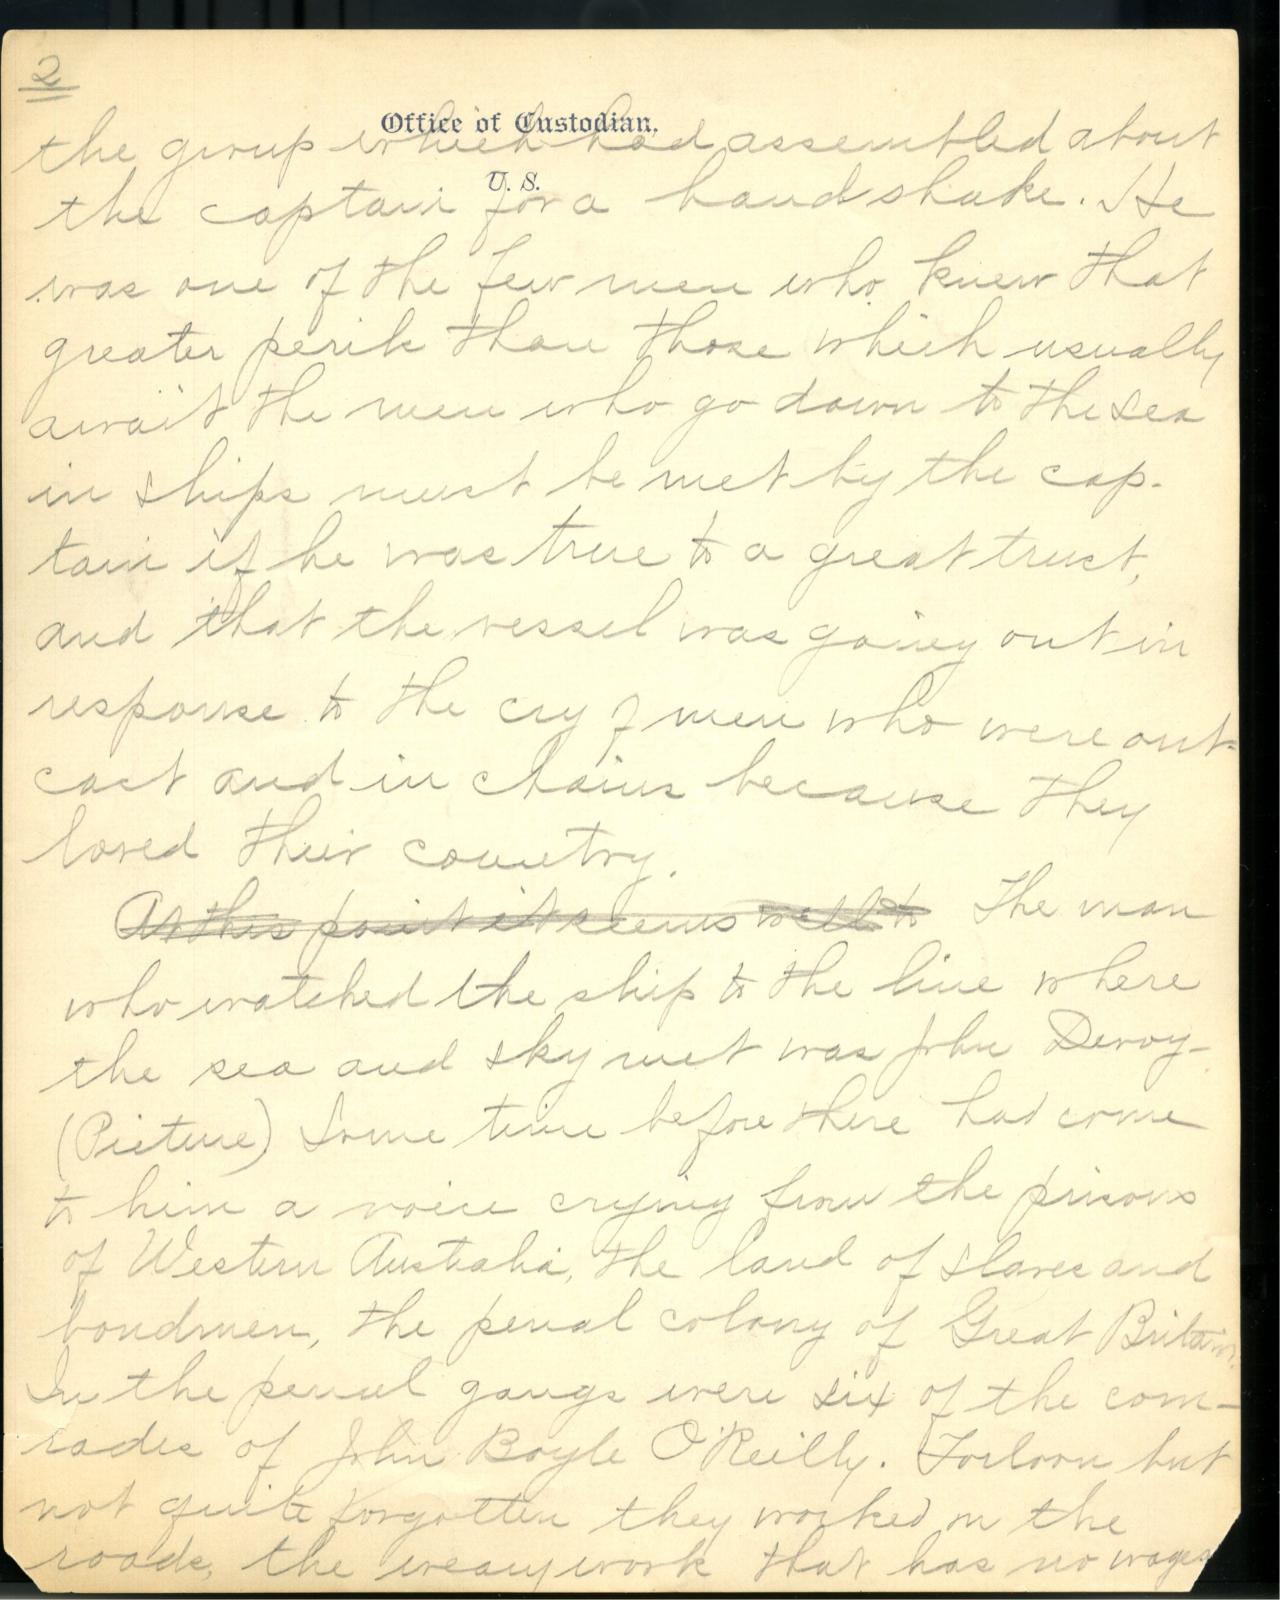 2
Office of Custodian,
U. S.
the group which had assembled about
the captain for a handshake. He
was one of the few men who knew that
greater perils than those which usually
await the men who go down to the sea
in ships must be met by the cap-
tain if he was true to a great trust,
and that the vessel was going out in
response to the cry of men who were out-
cast and in chains because they
loved their country.
At this point it seems well to The man
who watched the ship to the line where
the sea and sky met was John Devoy-
(Picture) Some time before there had come
to him a voice crying from the prisons
of Western Australia, the land of slaves and
bondmen, the penal colony of Great Britain.
In the penal gangs were six of the com-
rades of John Boyle O'Reilly. Forlorn but
not quite forgotten they worked on the
roads, the weary work that has no wages